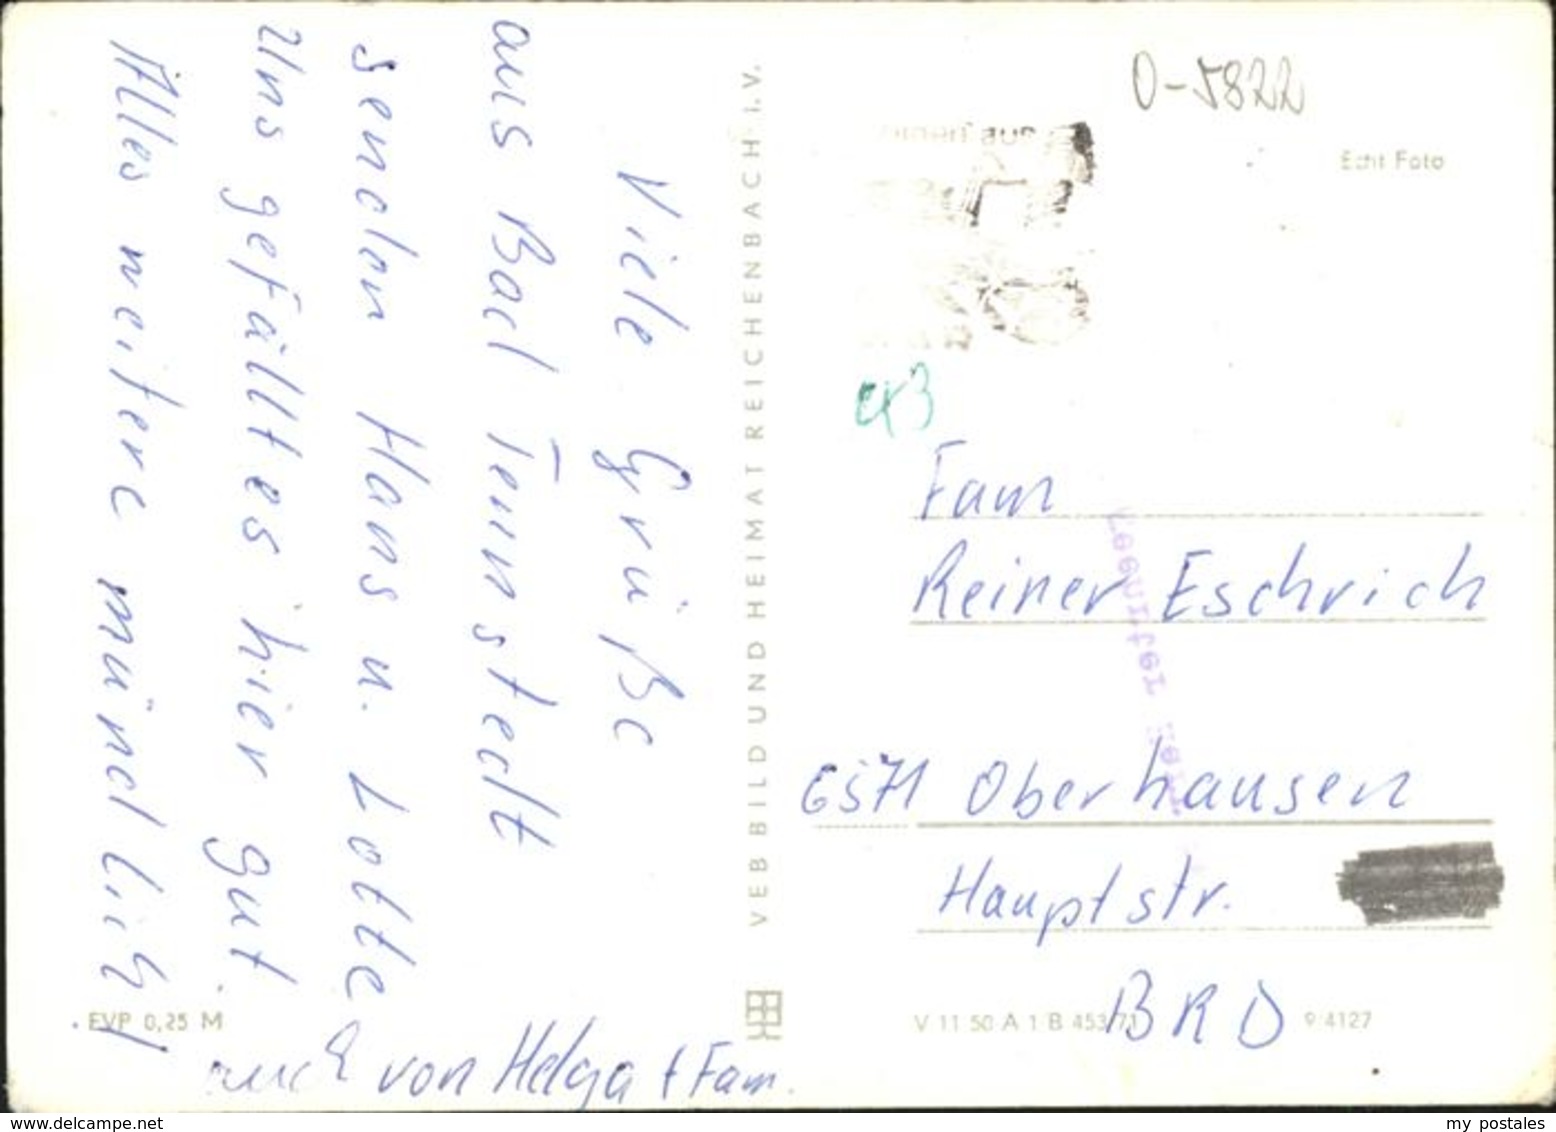 Viele Grüße
aus Bad Tennstedt
senden Hans u. Lotte
Uns gefällt es hier gut.
Alles weitere mündlich!
auch von Helga + Fam.
VEB BILD UND HEIMAT REICHENBACH I.V.
EVP 0,25 M
O-5822
Echt Foto
Fam
Reiner Eschrich
6571 Oberhausen
Hauptstr.
BRD
V 11 50 A 1 B 453/71 9/4127
www.delcampe.net
my_postales